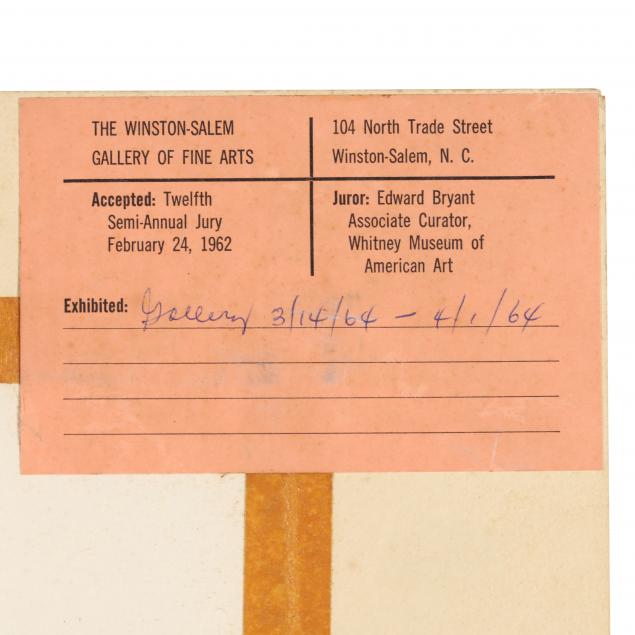 THE WINSTON-SALEM
GALLERY OF FINE ARTS
104 North Trade Street
Winston-Salem, N. C.
Accepted: Twelfth
Semi-Annual Jury
February 24, 1962
Juror: Edward Bryant
Associate Curator,
Whitney Museum of
American Art
Exhibited: Gallery 3/14/64 – 4/1/64